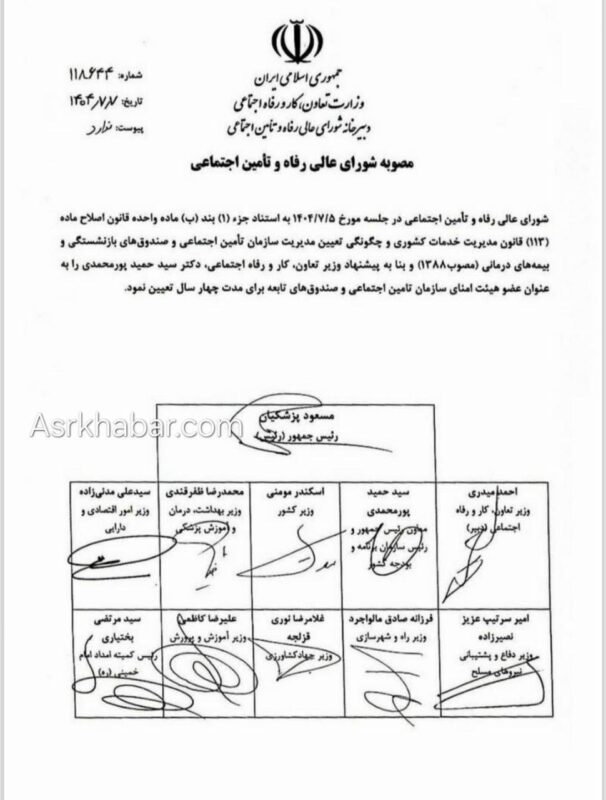 جمهوری اسلامی ایران
وزارت تعاون، کار و رفاه اجتماعی
دبیرخانه شورای عالی رفاه و تأمین اجتماعی
شماره: ۱۱۸۶۴۴
تاریخ: ۱۴۰۴/۷/۷
پیوست: ندارد
مصوبه شورای عالی رفاه و تأمین اجتماعی
شورای عالی رفاه و تأمین اجتماعی در جلسه مورخ ۱۴۰۴/۷/۵ به استناد جزء (۱) بند (ب) ماده واحده قانون اصلاح ماده
(۱۱۳) قانون مدیریت خدمات کشوری و چگونگی تعیین مدیریت سازمان تأمین اجتماعی و صندوق‌های بازنشستگی و
بیمه‌های درمانی (مصوب۱۳۸۸) و بنا به پیشنهاد وزیر تعاون، کار و رفاه اجتماعی، دکتر سید حمید پورمحمدی را به
عنوان عضو هیئت امنای سازمان تامین اجتماعی و صندوق‌های تابعه برای مدت چهار سال تعیین نمود.
Asrkhabar.com
مسعود پزشکیان
رئیس جمهور (رئیس)
احمد میدری
وزیر تعاون، کار و رفاه
اجتماعی (دبیر)
سید حمید
پورمحمدی
معاون رئیس جمهور و
رئیس سازمان برنامه و
بودجه کشور
اسکندر مومنی
وزیر کشور
محمدرضا ظفرقندی
وزیر بهداشت، درمان
و آموزش پزشکی
سیدعلی مدنی‌زاده
وزیر امور اقتصادی و
دارایی
امیر سرتیپ عزیز
نصیرزاده
وزیر دفاع و پشتیبانی
نیروهای مسلح
فرزانه صادق مالواجرد
وزیر راه و شهرسازی
غلامرضا نوری
قزلجه
وزیر جهادکشاورزی
علیرضا کاظمی
وزیر آموزش و پرورش
سید مرتضی
بختیاری
رئیس کمیته امداد امام
خمینی (ره)